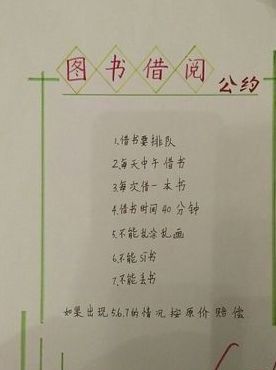 图书借阅公约
1.借书要排队
2.每天中午借书
3.每次借一本书
4.借书时间40分钟
5.不能乱涂乱画
6.不能sī书
7.不能丢书
如果出现5.6.7的情况按原价赔偿